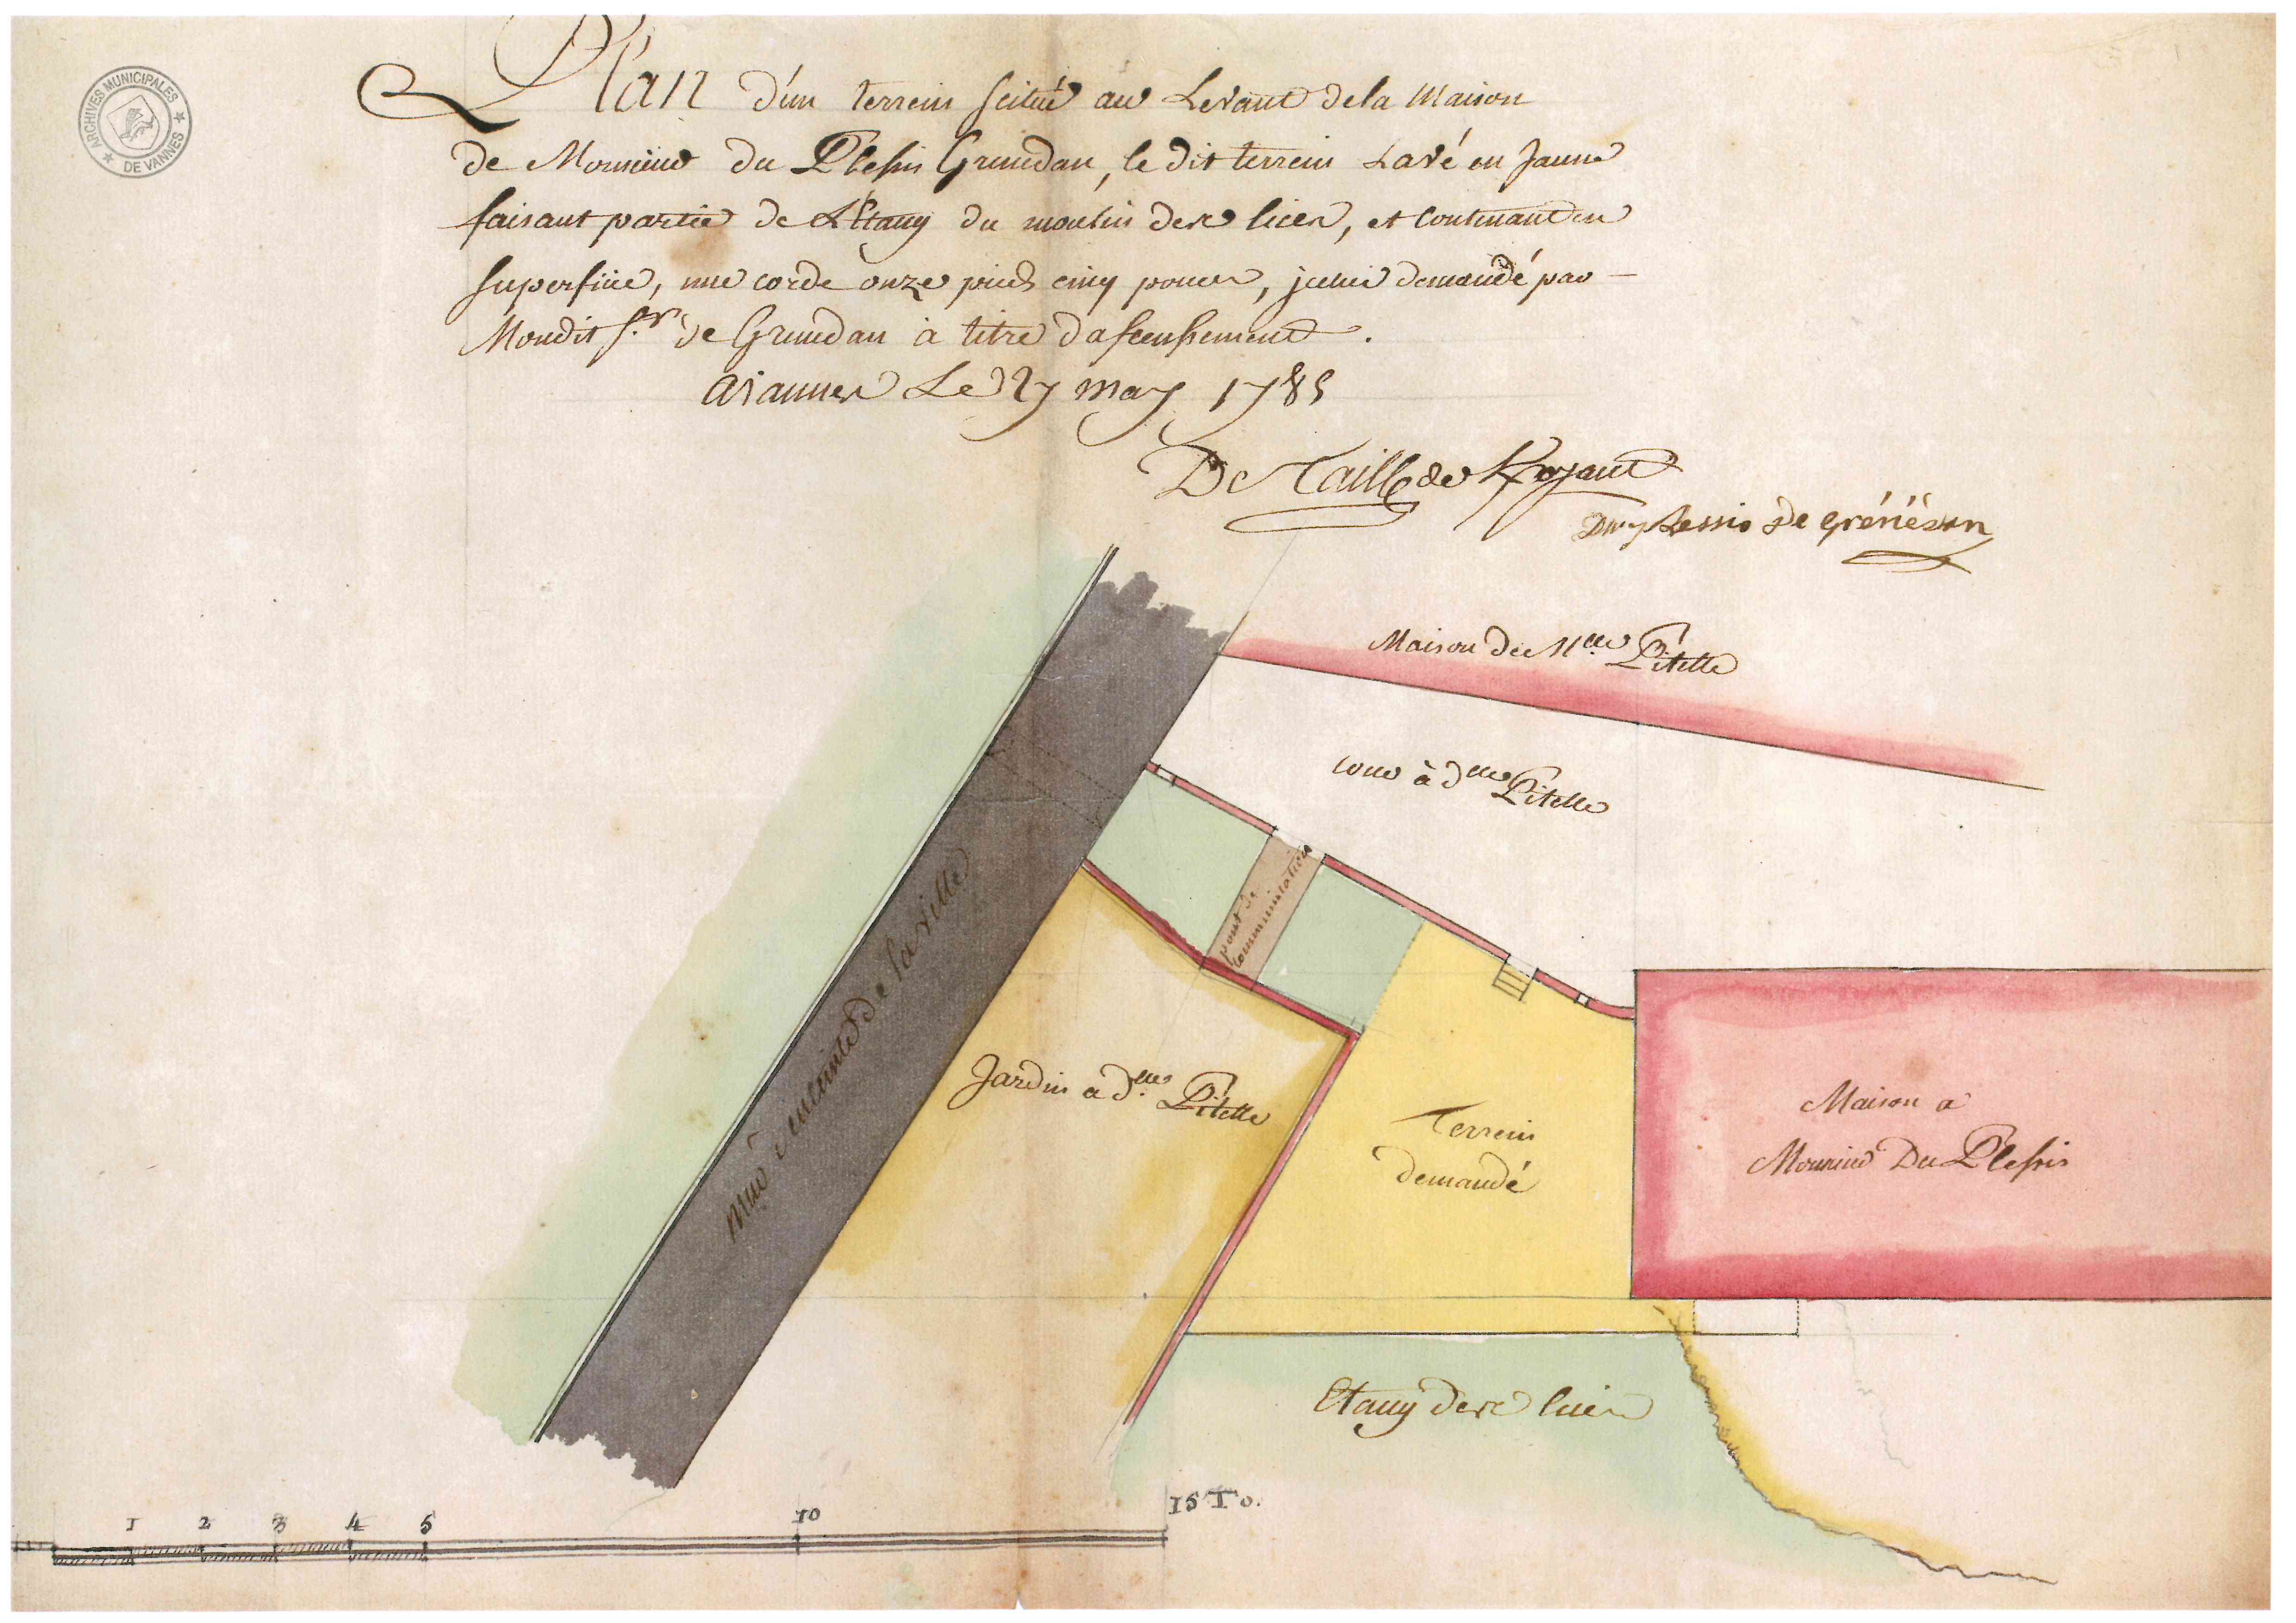 ARCHIVES MUNICIPALES DE VANNES
Plan d'un terrein scitué au Levant de la Maison
de Monsieur du Plessis Grenedan, le dit terrein Lavé en Jaune
faisant partie de L'Etang du moulin des lices, et Contenant en
superficie, une corde onze pieds cinq pouces, jcelui demandé par
Mondit Sr. de Grenedan à titre d'afeensement.
a Vannes Le 27 may 1785
De Taille de
Du plessis de grénédan
Maison du Mlle Pitelle
cour à dlle Pitelle
pont de
communication
mur d'enceinte de la ville
Jardin a dlle Pitelle
Terrein
demandé
Maison a
Monsieur Du Plessis
Etang des lices
1 2 3 4 5 10 15 To.